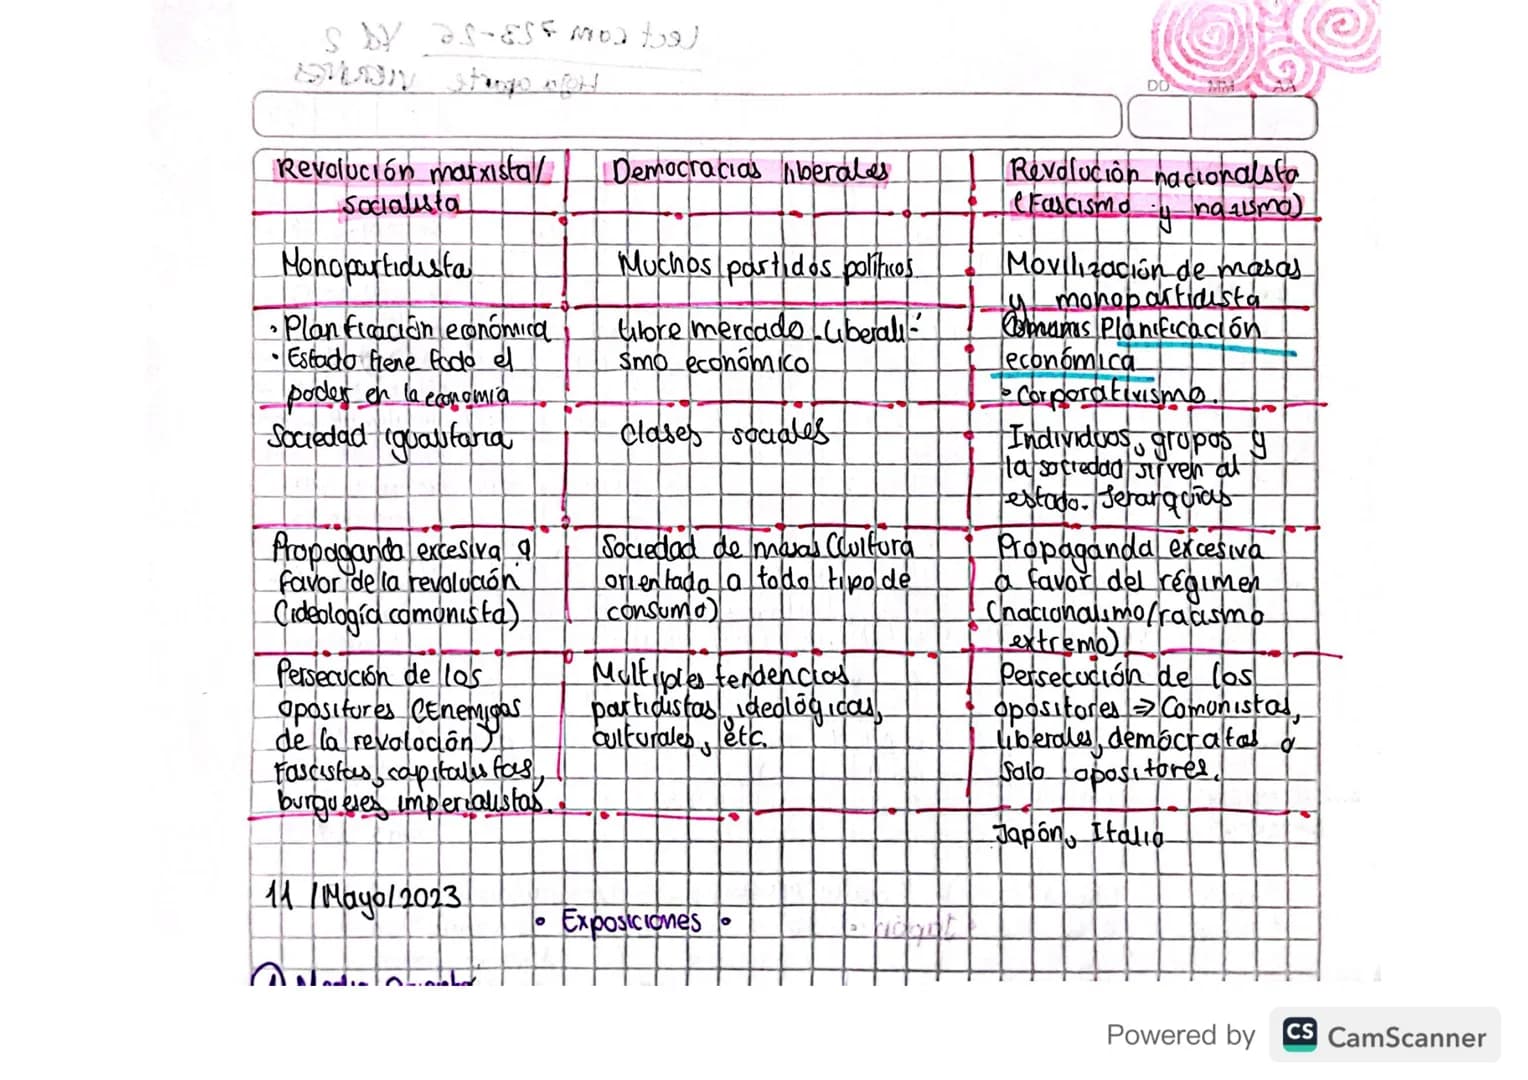 Lect com 7 S3-26 Yd 2
Hoja aparte VIERNES
DD MM AA
Revolución marxista/
Socialista
Democracias liberales
Revolución nacionalsta
(Fascismo y nazismo)
Monopartidista
Muchos partidos políticos
Movilización de masas
y monopartidista
• Planficación económica
• Estado tiene todo el
poder en la economía
Libre mercado. Liberali-
smo económico
Planificación
económica
• Corporativismo.
Sociedad igualitaria
Clases sociales
Individuos, grupos y
la sociedad sirven al
estado. Jerarquías
Propaganda excesiva a
favor de la revolución
(ideología comunista)
Sociedad de masas (Cultura
orientada a todo tipo de
consumo)
Propaganda excesiva
a favor del régimen
(nacionalismo/racismo
extremo)
Persecución de los
opositores (Enemigos
de la revolución)
Fascistas, capitalistas,
burgueses, imperialistas.
Múltiples tendencias
partidistas, ideológicas,
culturales, etc.
Persecución de los
opositores ⇒ Comunistas,
liberales, demócratas o
solo opositores.
Japón, Italia
11 /Mayo/2023
• Exposiciones •
Japón
① Medio Oriente
Powered by CS CamScanner